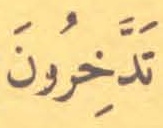 تَدَّخِرُونَ